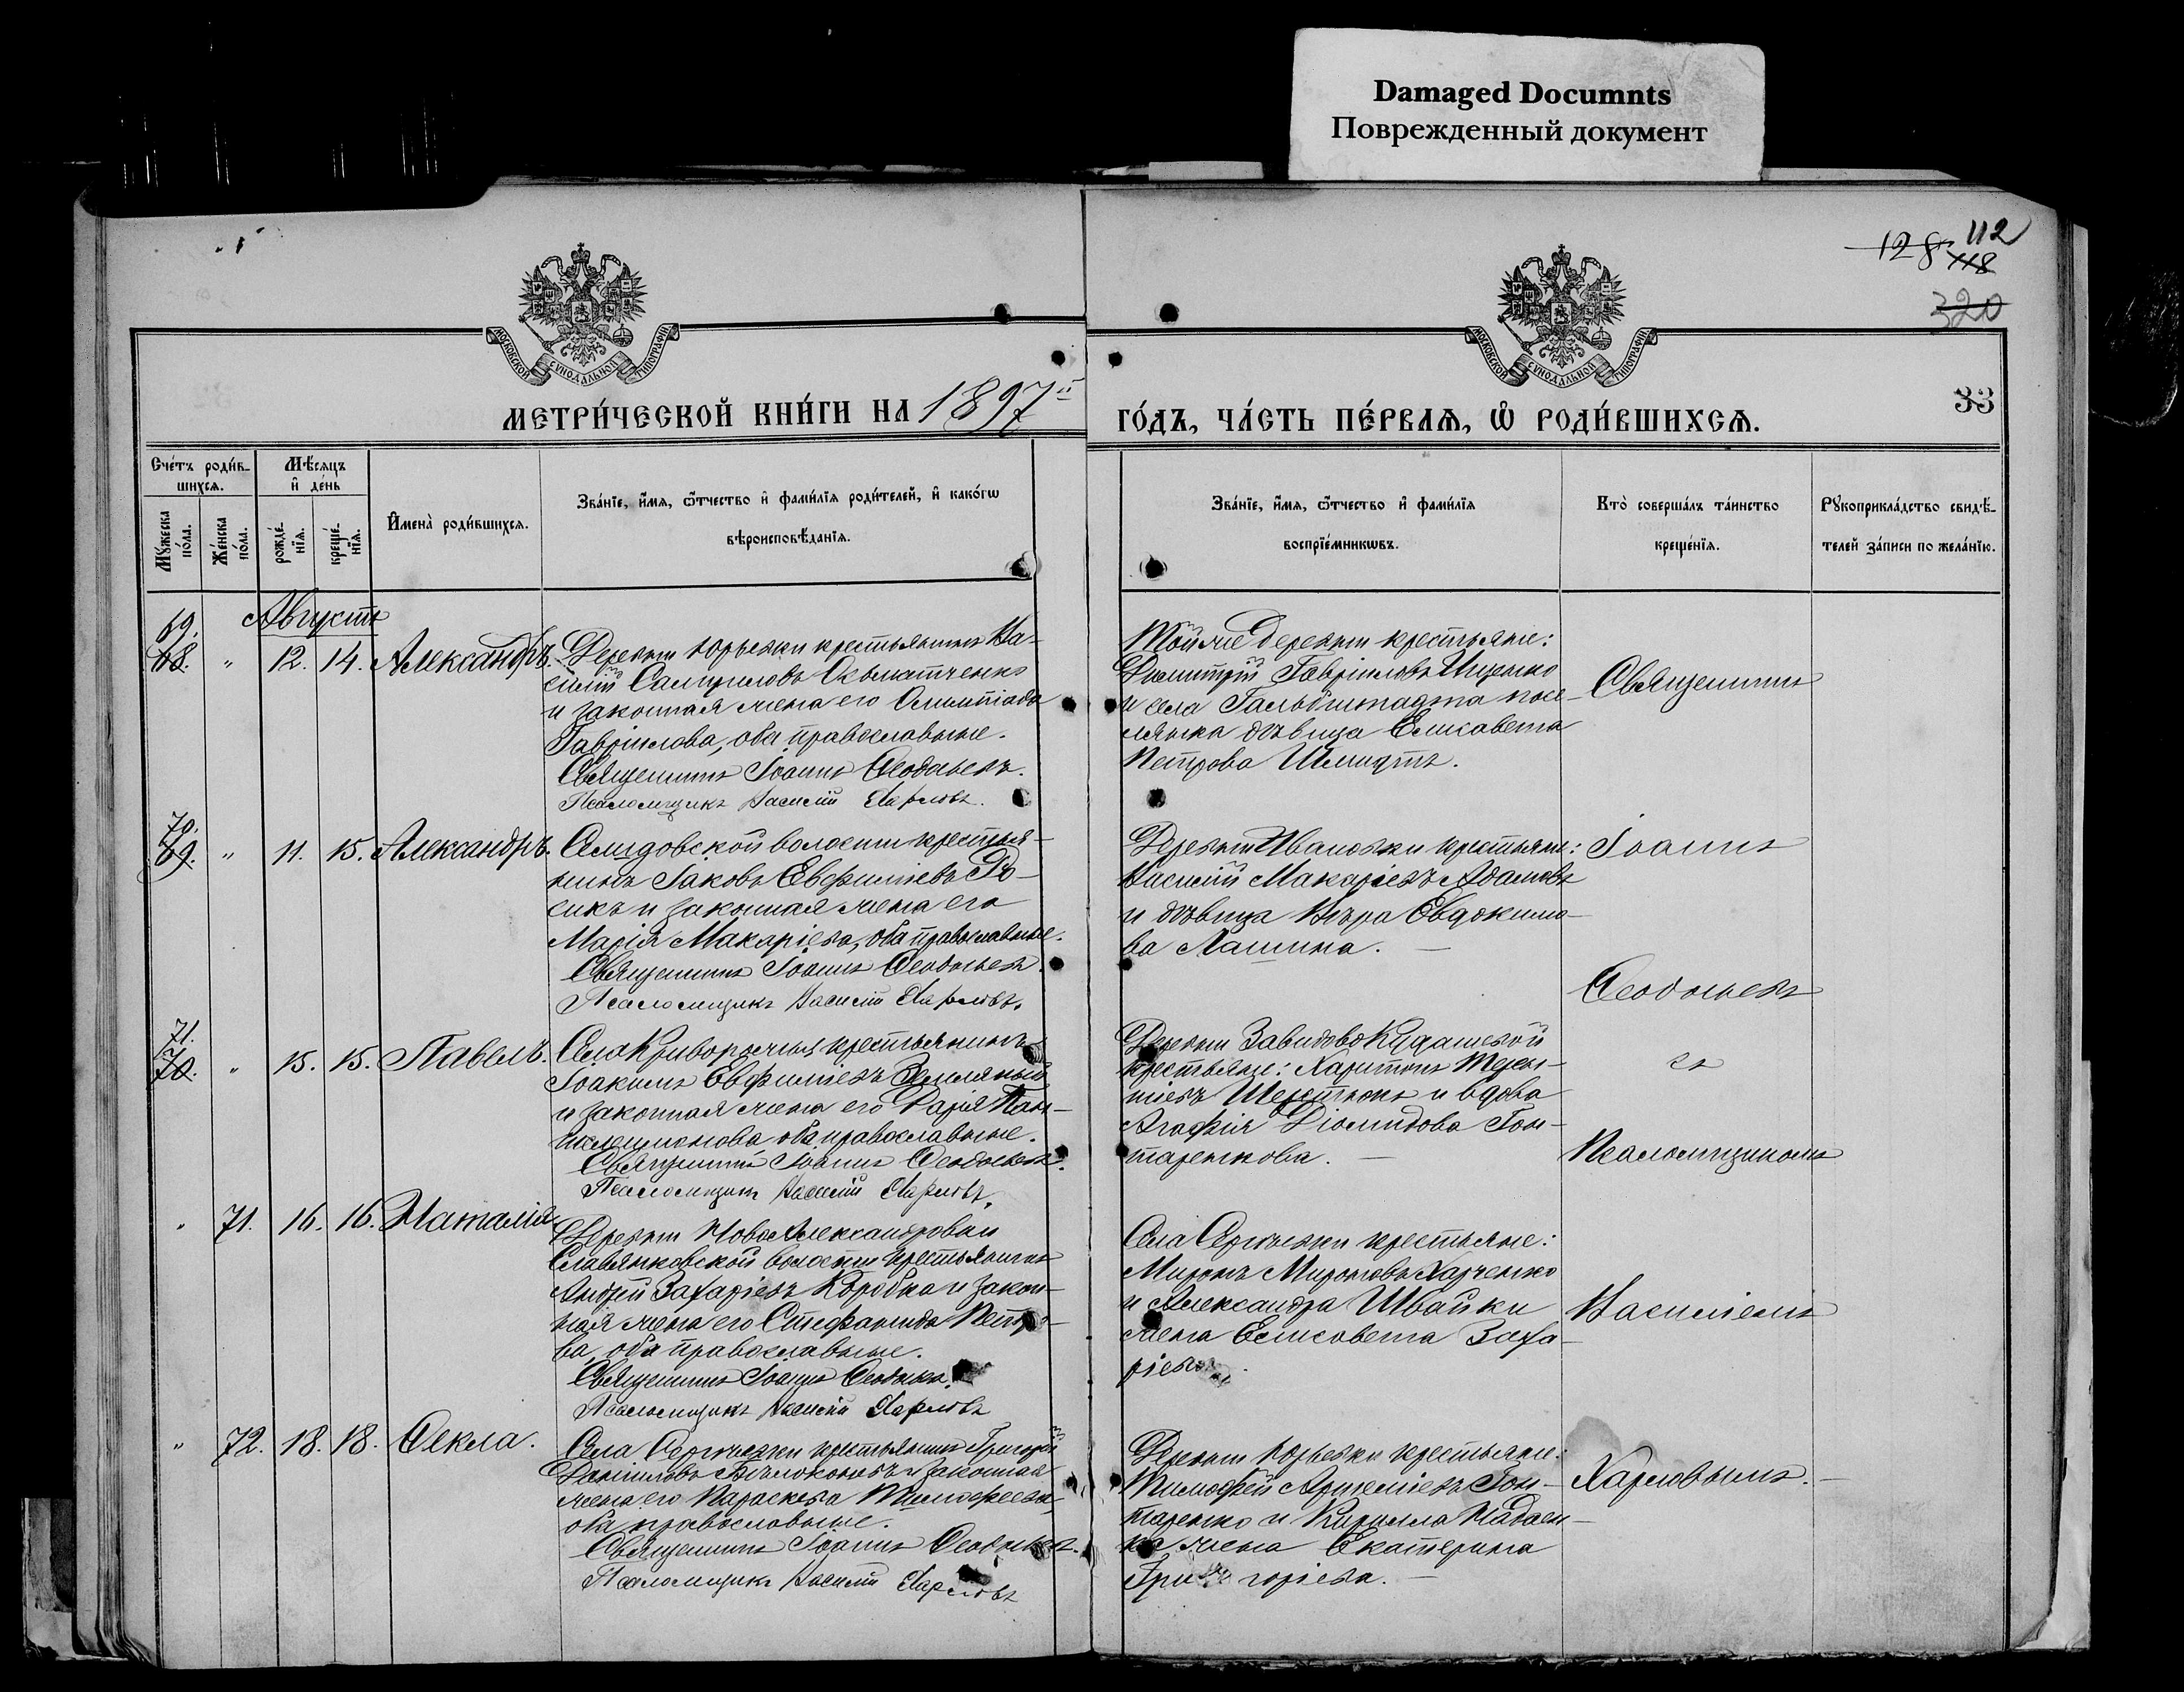 Damaged Documnts
Поврежденный документ
128 112
118
320
33
МОСКОВСКОЙ СѴНОДАЛЬНОЙ ТИПОГРАФІИ
МОСКОВСКОЙ СѴНОДАЛЬНОЙ ТИПОГРАФІИ
МЕТРИ́ЧЕСКОЙ КНИ́ГИ НА 1897й
ГО́ДЪ, ЧА́СТЬ ПЕ́РВАѦ, Ѡ҆ РОДИ́ВШИХСѦ.
Сче́тъ роди́в-
шихсѧ.
Мꙋ́жеска по́ла.
Же́нска по́ла.
Мѣ́сѧцъ
и҆ де́нь
рожде́-
нїѧ.
креще́-
нїѧ.
И҆мена̀ роди́вшихсѧ.
Зва́нїе, и҆́мѧ, ѻ҆́тчество и҆ фами́лїѧ роди́телей, и҆ како́гѡ
вѣроисповѣ́данїѧ.
Зва́нїе, и҆́мѧ, ѻ҆́тчество и҆ фами́лїѧ
воспрїе́мникѡвъ.
Кто̀ соверша́лъ та́инство
креще́нїѧ.
Рꙋкоприкла́дство свидѣ́-
телей за́писи по жела́нїю.
Августъ
69.
68. " 12. 14. Александръ.
Деревни Юрьевки крестьянинъ Ва-
силій
и законная жена его Олимпіада
Гавріилова, оба православные.
Священникъ Іоаннъ Ѳеодосьевъ.
Псаломщикъ Василій Харловъ.
Той же деревни крестьяне:
Димитрій Гавріиловъ Ищенко
и села Гальбштадта посе-
лянка дѣвица Елисавета
Петрова Шмидтъ.
Священникъ
70.
69. " 11. 15. Александръ.
волости крестья-
нинъ Іаковъ Евфиміевъ
и законная жена его
Марія Макаріева, оба православные.
Священникъ Іоаннъ Ѳеодосьевъ.
Псаломщикъ Василій Харловъ.
Деревни Ивановки крестьяне:
Василій Макаріевъ Адамовъ
и дѣвица Вѣра Евдокимо-
ва Лашина.
Іоаннъ
Ѳеодосьевъ
71.
70. " 15. 15. Павелъ.
Села крестьянинъ
Іоакимъ Евфиміевъ Земляный
и законная жена его Дарія Пан-
телеимонова оба православные.
Священникъ Іоаннъ Ѳеодосьевъ.
Псаломщикъ Василій Харловъ.
Деревни Завидово Кудашевой
крестьяне: Харитонъ Терен-
тіевъ и вдова
Агафія Діомидова Гон-
таренкова.
съ
Псаломщикомъ
" 71. 16. 16. Наталія.
Деревни НовоАлександровки
Славянковской волости крестьянинъ
Андрей Захаріевъ Коробка и закон-
ная жена его Стефанида Петро-
ва, оба православные.
Священникъ Іоаннъ Ѳеодосьевъ.
Псаломщикъ Василій Харловъ
Села Сергѣевки крестьяне:
Миронъ Мироновъ Харченко
и Александра Швайки
жена Елисавета Заха-
ріева.
Василіемъ
" 72. 18. 18. Ѳекла.
Села Сергѣевки крестьянинъ Григорій
Даніиловъ Бѣлоконевъ и законная
жена его Параскева Тимоѳеева,
оба православные.
Священникъ Іоаннъ Ѳеодосьевъ.
Псаломщикъ Василій Харловъ
Деревни Юрьевки крестьяне:
Тимоѳей Артеміевъ Гон-
таренко и Кирилла Чабан-
ка жена Екатерина
Григоріева.
Харловымъ.